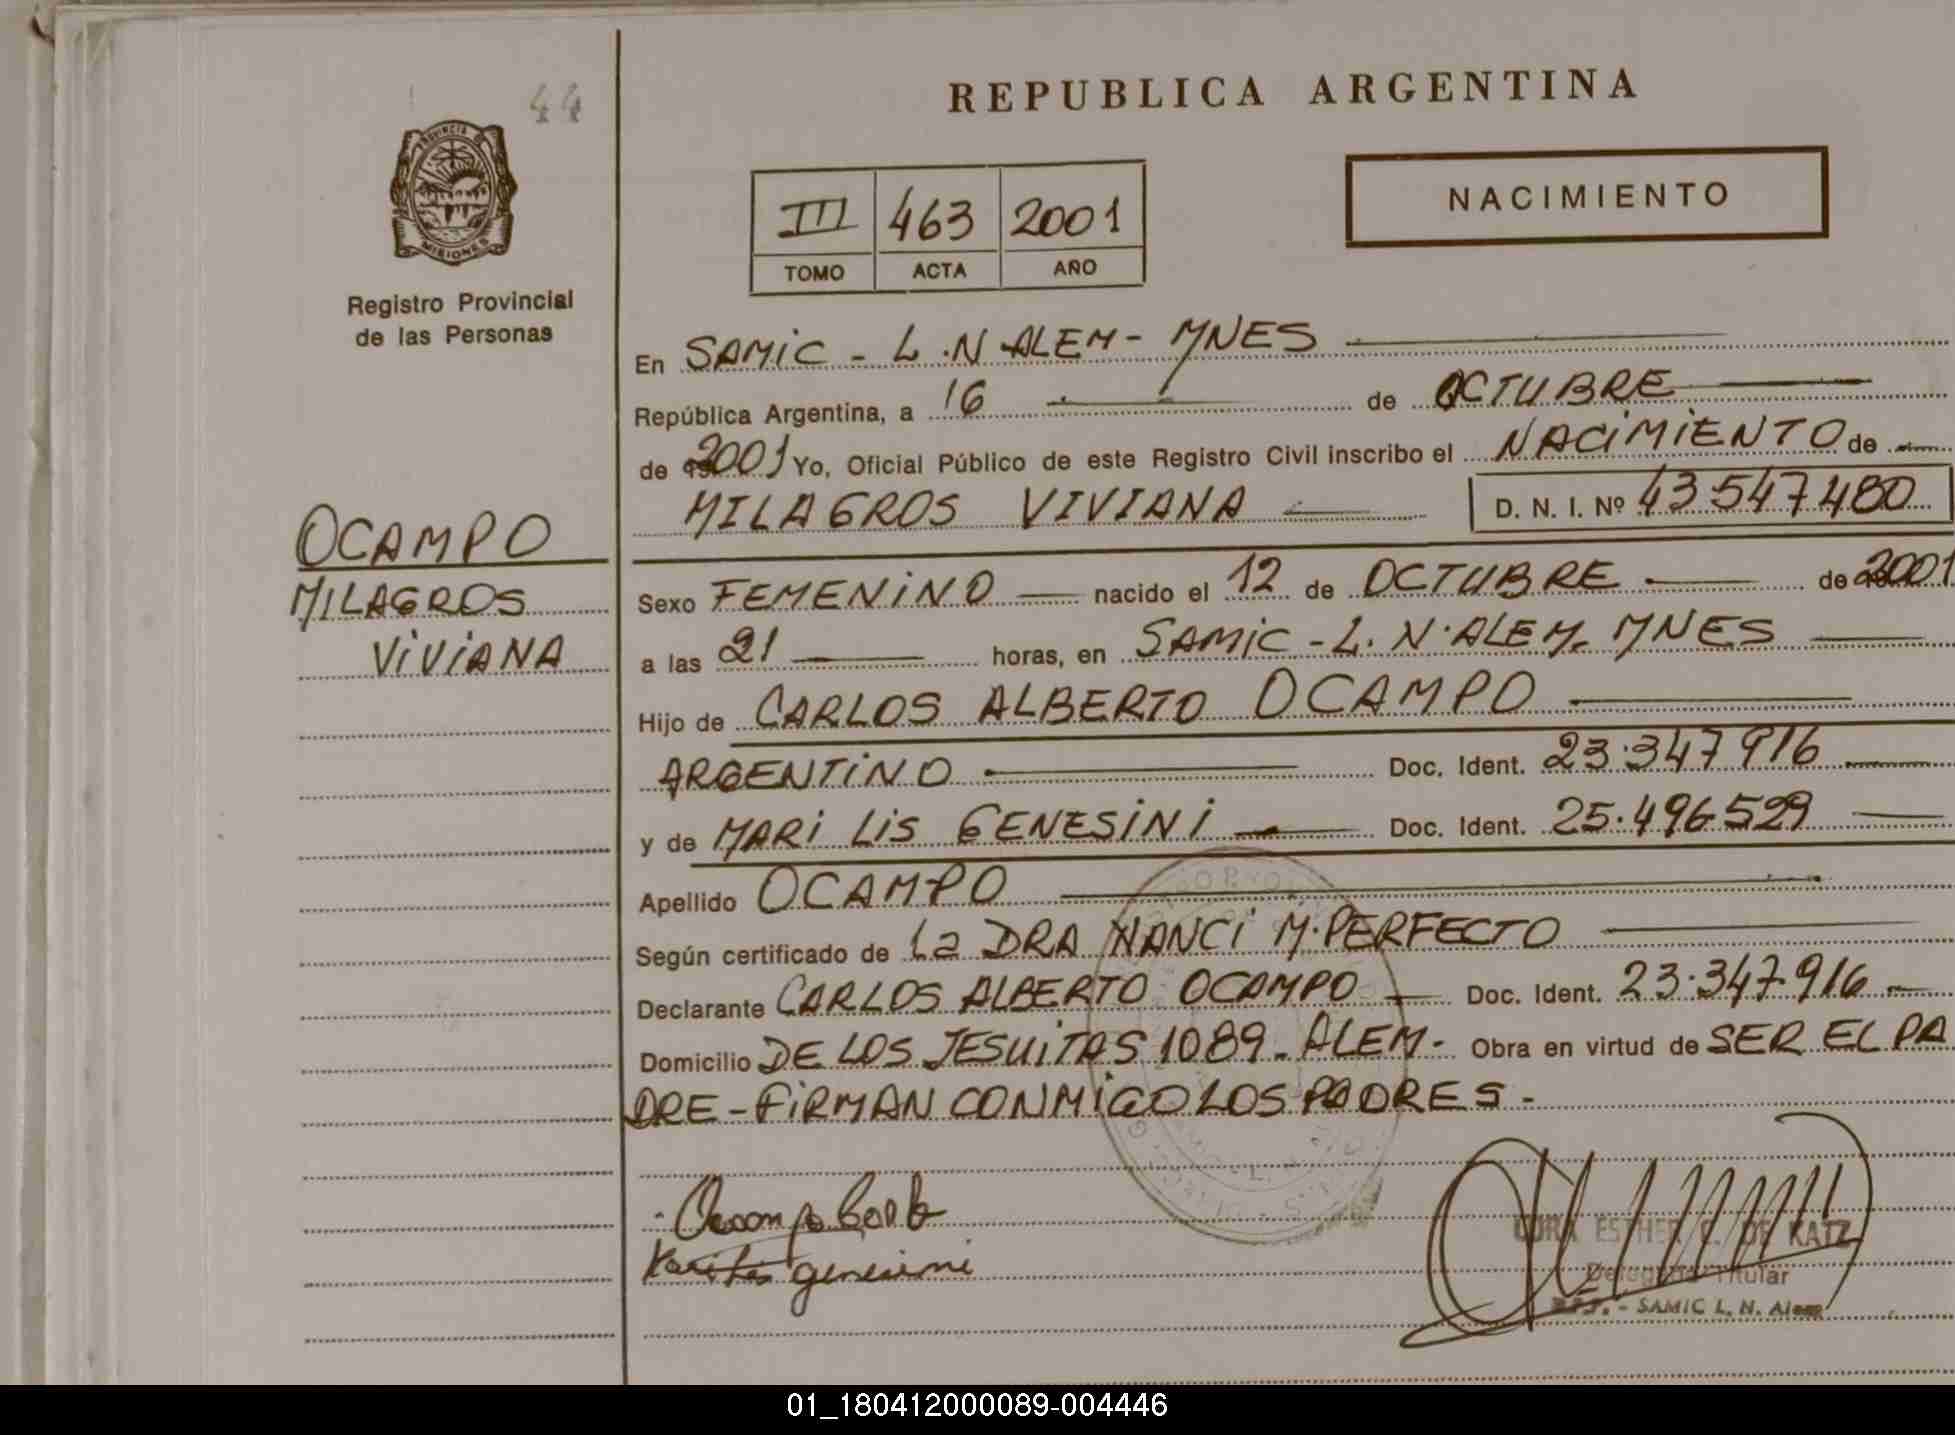 44
PROVINCIA DE
MISIONES
Registro Provincial
de las Personas
OCAMPO
MILAGROS
VIVIANA
REPUBLICA ARGENTINA
III 463 2001
TOMO ACTA AÑO
NACIMIENTO
En SAMIC - L.N.ALEM - MNES
República Argentina, a 16 de OCTUBRE
de 2001 Yo, Oficial Público de este Registro Civil inscribo el NACIMIENTO de
MILAGROS VIVIANA D. N. I. Nº 43.547.480
Sexo FEMENINO nacido el 12 de OCTUBRE de 2001
a las 21 horas, en SAMIC - L. N. ALEM. MNES
Hijo de CARLOS ALBERTO OCAMPO
ARGENTINO Doc. Ident. 23.347.916
y de MARI LIS GENESINI Doc. Ident. 25.496.529
Apellido OCAMPO
Según certificado de La DRA NANCI M. PERFECTO
Declarante CARLOS ALBERTO OCAMPO Doc. Ident. 23.347.916
Domicilio DE LOS JESUITAS 1089. ALEM. Obra en virtud de SER EL PA
DRE - FIRMAN CONMIGO LOS PADRES -
Ocampo Carlo
genesini
ESTHER C. DE KATZ
Delegada Titular
- SAMIC L. N. Alem
01_180412000089-004446